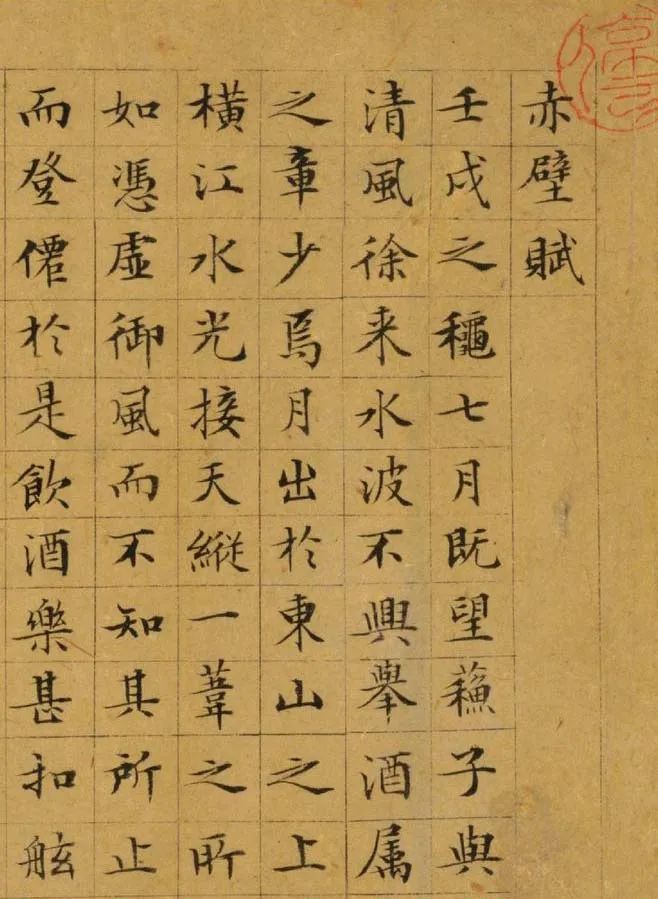 赤壁賦
壬戌之龝七月既望蘓子與
清風徐来水波不興舉酒属
之章少焉月出於東山之上
橫江水光接天縱一葦之所
如憑虛御風而不知其所止
而登僊於是飲酒樂甚扣舷